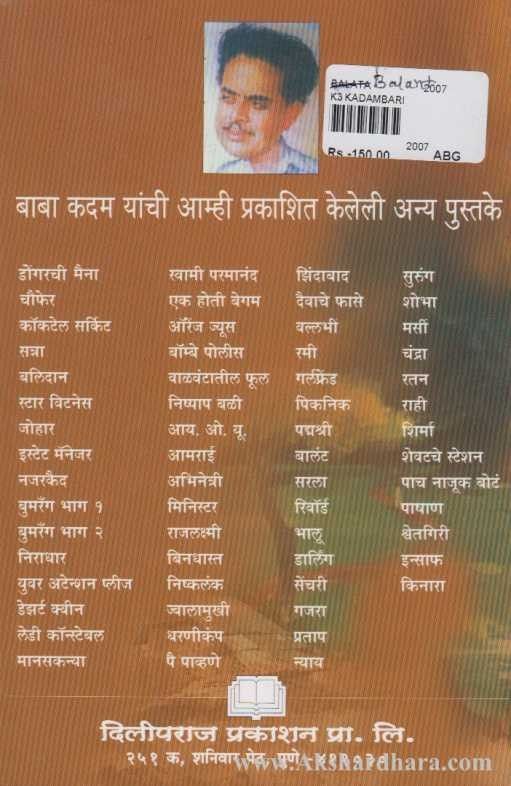 BALATA Balant 2007
K3 KADAMBARI
2007
Rs.-150.00 ABG
बाबा कदम यांची आम्ही प्रकाशित केलेली अन्य पुस्तके
डोंगरची मैना
चौफेर
कॉकटेल सर्किट
सत्रा
बलिदान
स्टार विटनेस
जोहार
इस्टेट मॅनेजर
नजरकैद
बुमरँग भाग १
बुमरँग भाग २
निराधार
युवर अटेन्शन प्लीज
डेझर्ट क्वीन
लेडी कॉन्स्टेबल
मानसकन्या
स्वामी परमानंद
एक होती बेगम
ऑरेंज ज्यूस
बॉम्बे पोलीस
वाळवंटातील फूल
निष्पाप बळी
आय. ओ. यू.
आमराई
अभिनेत्री
मिनिस्टर
राजलक्ष्मी
बिनधास्त
निष्कलंक
ज्वालामुखी
धरणीकंप
पै पाव्हणे
झिंदाबाद
दैवाचे फासे
वल्लभी
रमी
गर्लफ्रेंड
पिकनिक
पद्मश्री
बालंट
सरला
रिवॉर्ड
भालू
डार्लिंग
सेंचरी
गजरा
प्रताप
न्याय
सुरुंग
शोभा
मर्सी
चंद्रा
रतन
राही
शिर्मा
शेवटचे स्टेशन
पाच नाजूक बोटं
पाषाण
श्वेतगिरी
इन्साफ
किनारा
दिलीपराज प्रकाशन प्रा. लि.
२५१ क, शनिवार पेठ, पुणे
www.Akshardhara.com